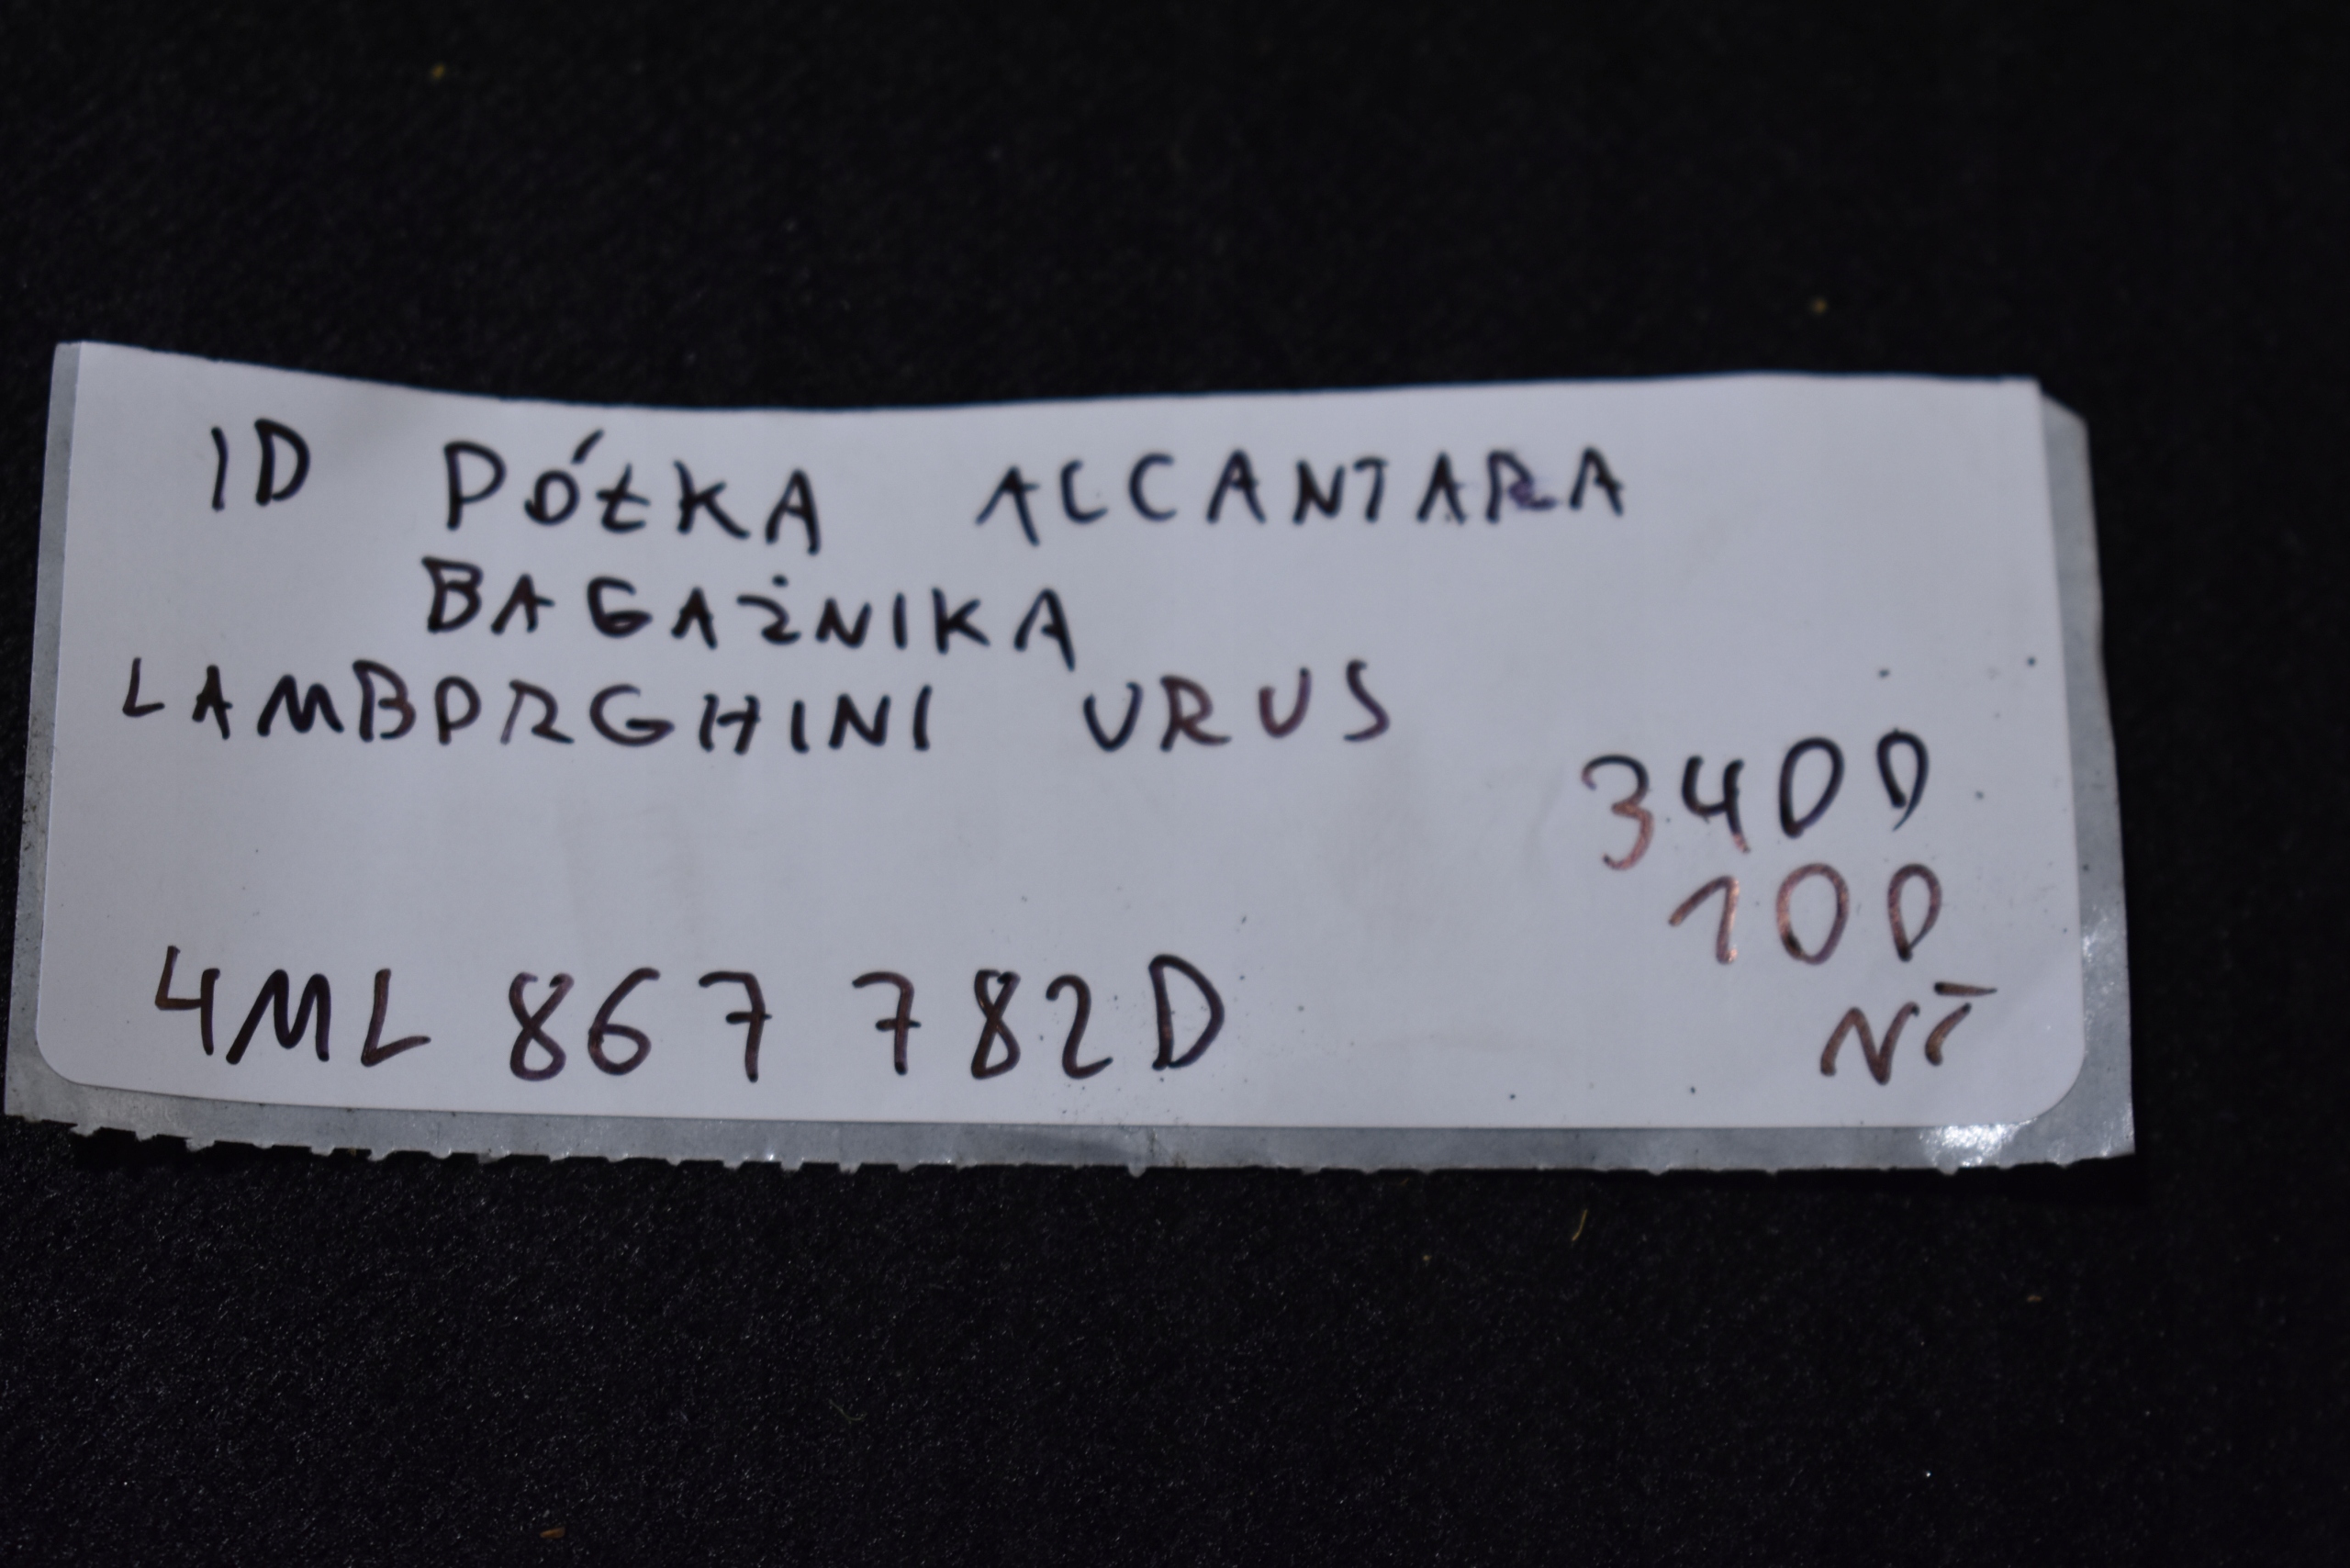 ID PÓŁKA ALCANTARA
BAGAŻNIKA
LAMBORGHINI URUS
3400
100
NT
4ML 867 782D